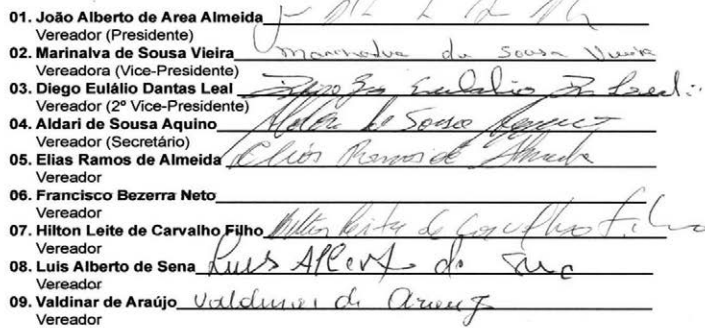 01. João Alberto de Area Almeida
Vereador (Presidente)
02. Marinalva de Sousa Vieira Marinalva de Sousa Vieira
Vereadora (Vice-Presidente)
03. Diego Eulálio Dantas Leal Eulalio Leal
Vereador (2º Vice-Presidente)
04. Aldari de Sousa Aquino de Sousa
Vereador (Secretário)
05. Elias Ramos de Almeida Elias Ramos de Almeida
Vereador
06. Francisco Bezerra Neto
Vereador
07. Hilton Leite de Carvalho Filho Hilton Leite de Carvalho Filho
Vereador
08. Luis Alberto de Sena Luis Albert de
Vereador
09. Valdinar de Araújo Valdinar de
Vereador